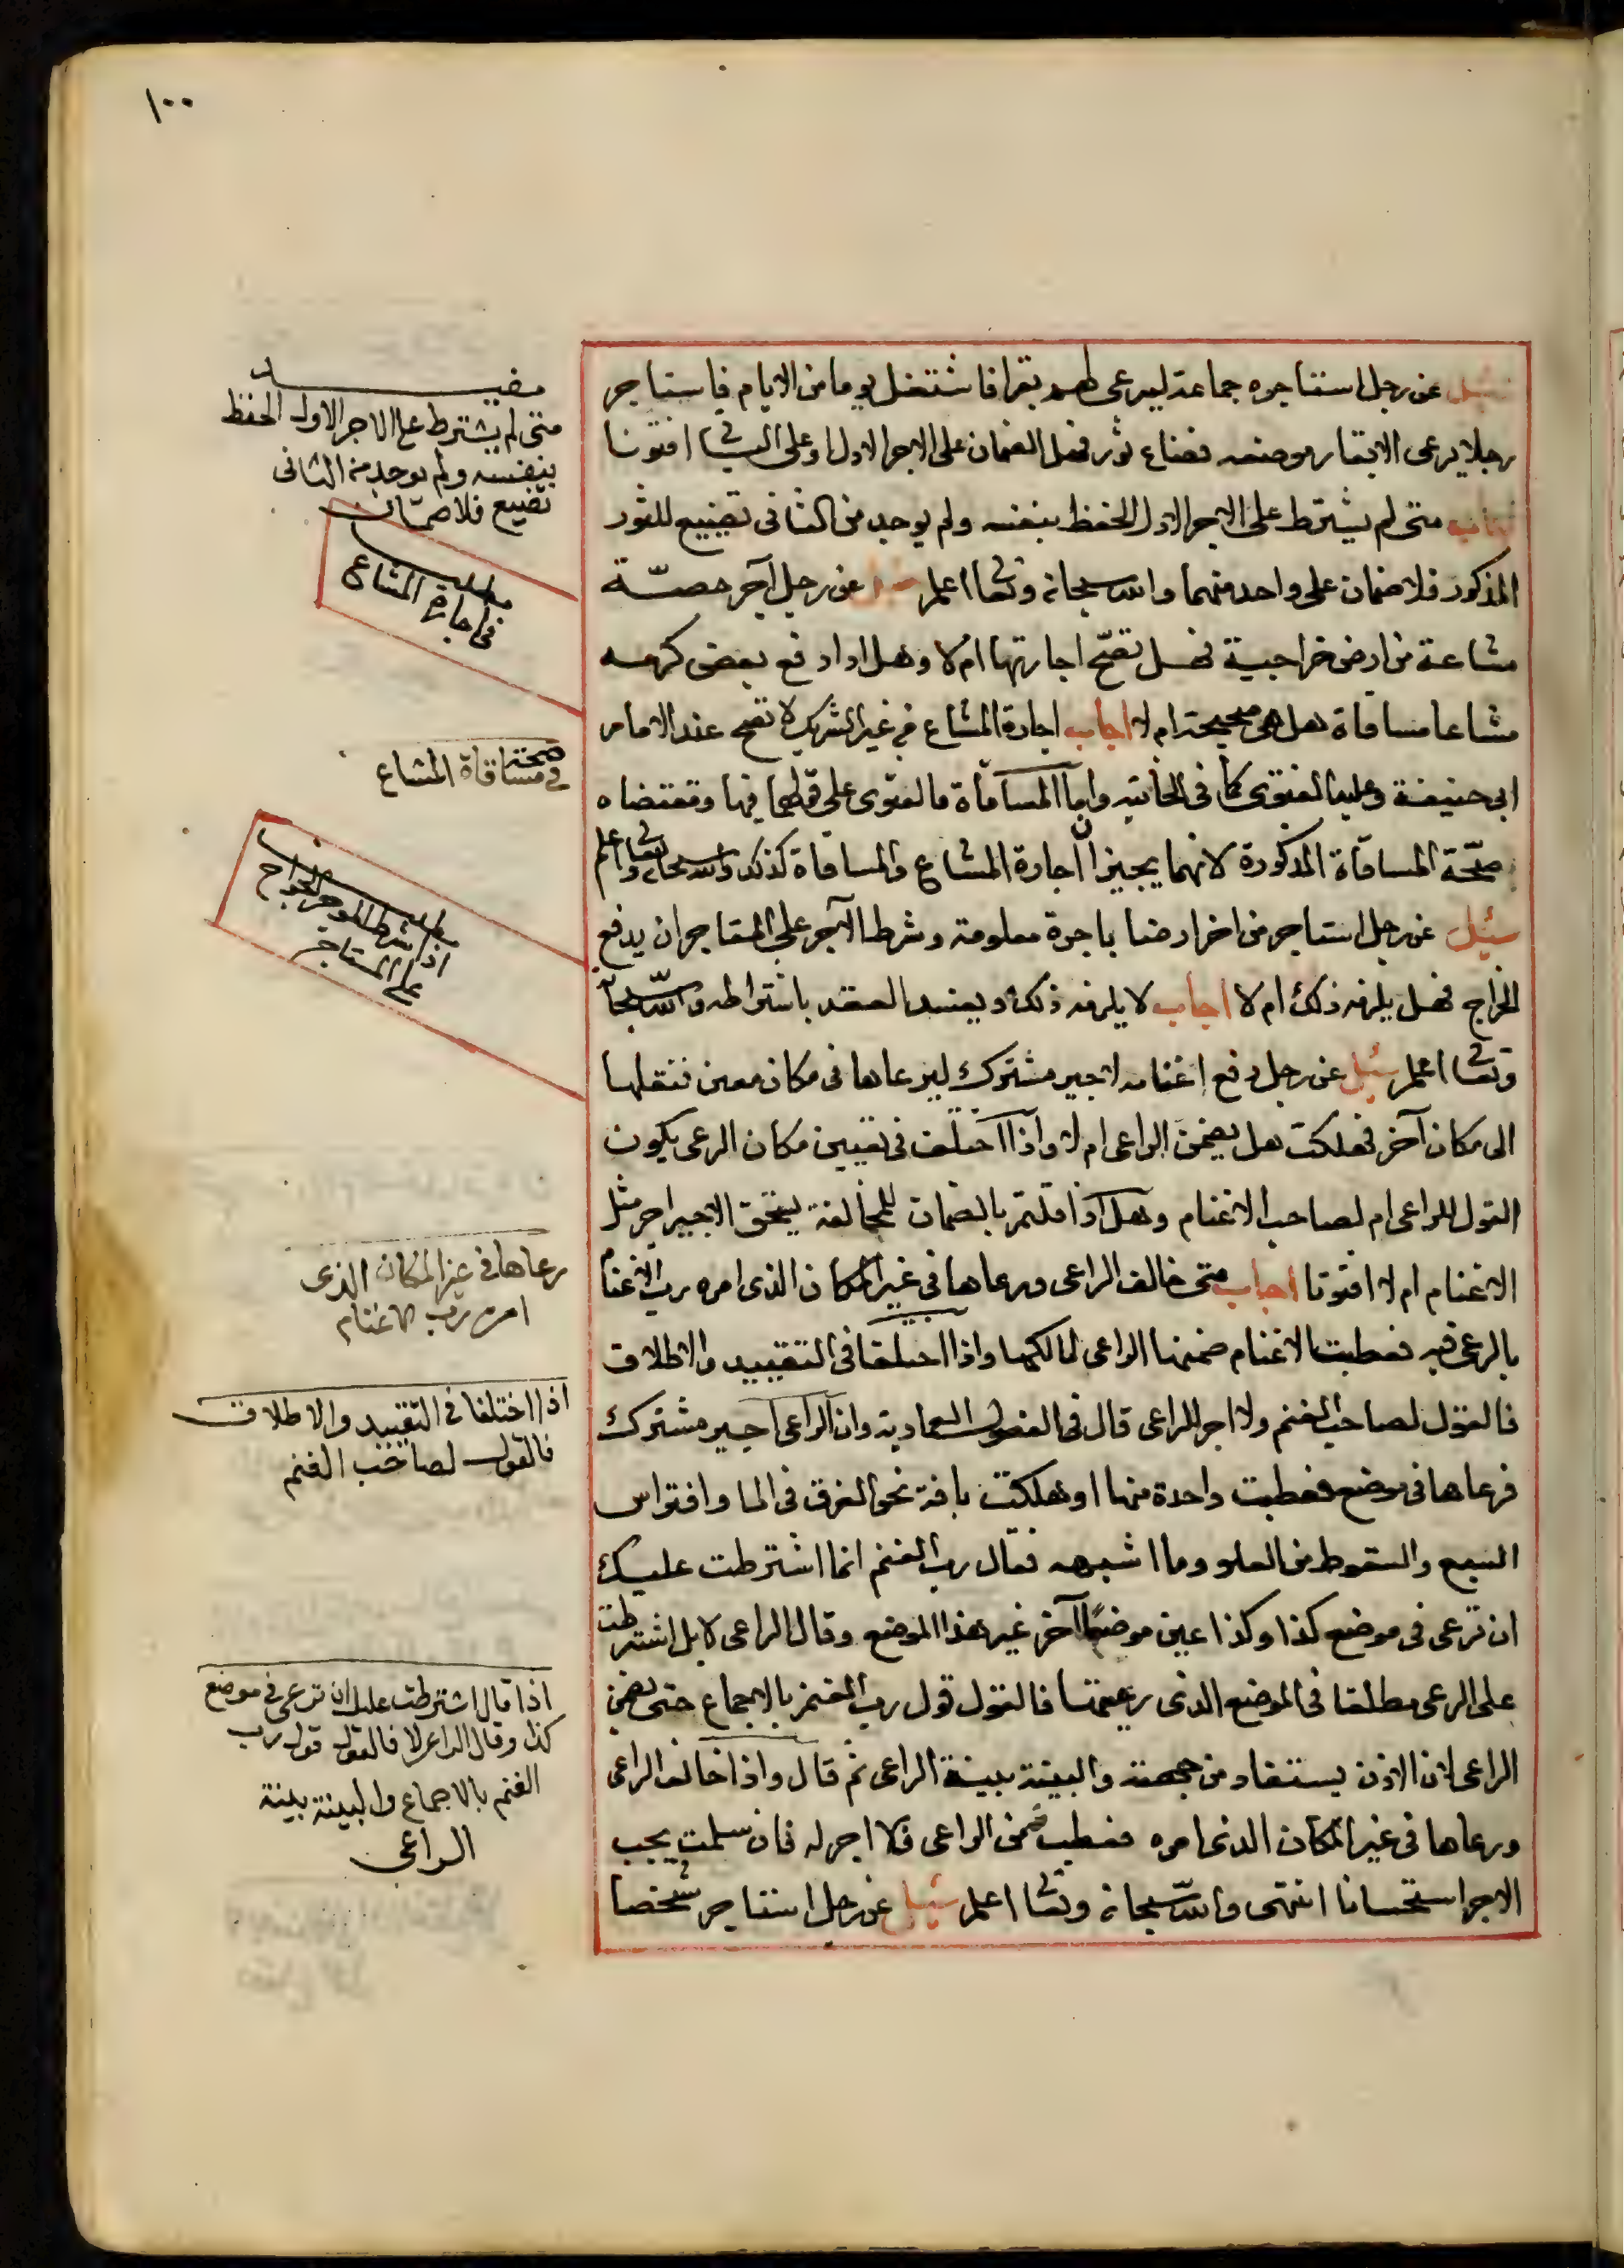 ١٠٠
سئل عن رجل استاجره جماعة ليرعى لهم بقرا فاشتغل يوما من الايام فاستاجر
رجلا يرعى الابقار موضعه فضاع ثور فهل الضمان على الاجير الاول او على الثاني افتونا
اجاب متى لم يشترط على الاجير الاول الحفظ بنفسه ولم يوجد من الثاني تضييع للثور
المذكور فلا ضمان على واحد منهما والله سبحانه وتعالى اعلم سئل عن رجل آجر حصّة
مشاعة من ارض خراجية فهل تصحّ اجارتها ام لا وهل اذا دفع بعض كرمه
مشاعا مساقاة هل هي صحيحة ام لا اجاب اجارة المشاع في غير الشريك لا تصح عند الامام
ابي حنيفة وعليه الفتوى كما في الخانية واما المساقاة فالفتوى على قولهما فيها ومقتضاه
صحّة المساقاة المذكورة لانهما يجيزان اجارة المشاع والمساقاة كذلك والله سبحانه وتعالى اعلم
سئل عن رجل استاجر من اخر ارضا باجرة معلومة وشرط الآجر على المستاجر ان يدفع
الخراج فهل يلزمه ذلك ام لا اجاب لا يلزمه ذلك ويفسد العقد باشتراطه والله سبحانه
وتعالى اعلم سئل عن رجل دفع اغنامه لاجير مشترك ليرعاها في مكان معين فنقلها
الى مكان آخر فهلكت هل يضمن الراعي ام لا واذا اختلف في تعيين مكان الرعي يكون
القول للراعي ام لصاحب الاغنام وهل اذا قلتم بالضمان للمخالفة يستحق الاجير اجر مثل
الاغنام ام لا افتونا اجاب متى خالف الراعي ورعاها في غير المكان الذي امره رب الاغنام
بالرعي فيه فعطبت الاغنام ضمنها الراعي لمالكها واذا اختلفا في التقييد والاطلاق
فالقول لصاحب الغنم ولا اجر للراعي قال في الفصول العمادية وان الراعي اجير مشترك
فرعاها في موضع فعطبت واحدة منها او هلكت بافة نحو الغرق في الما وافتراس
السبع والسقوط من العلو وما اشبهه فقال رب الغنم انما اشترطت عليك
ان ترعى في موضع كذا وكذا عين موضعا آخر غير هذا الموضع وقال الراعي لا بل اشترطت
على الرعي مطلقا في الموضع الذي رعيتها فالقول قول رب الغنم بالاجماع حتى يضمن
الراعي لان الاذن يستفاد من جهته والبينة بينة الراعي ثم قال واذا خالف الراعي
ورعاها في غير المكان الذي امره فعطبت ضمن الراعي فلا اجر له فان سلمت يجب
الاجر استحسانا انتهى والله سبحانه وتعالى اعلم سئل عن رجل استاجر شخصا
متى لم يشترط على الاجير الاول الحفظ
بنفسه ولم يوجد من الثاني
تضييع فلا ضمان
مطلب
في اجارة المشاع
صحة
في مساقاة المشاع
مطلب
اذا شرط الموجر الخراج
على المستاجر
رعاها في غير المكان الذي
امره رب الاغنام
اذا اختلفا في التقييد والاطلاق
فالقول لصاحب الغنم
اذا قال اشترطت عليك ان ترعى في موضع
كذا وقال الراعي لا فالقول قول رب
الغنم بالاجماع والبينة بينة
الراعي